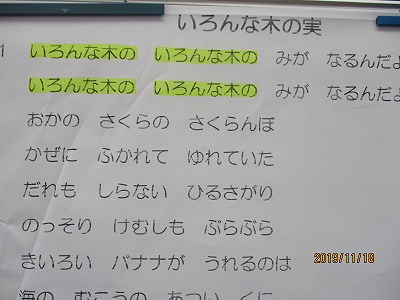 いろんな木の実
1 いろんな木の いろんな木の みが なるんだよ
いろんな木の いろんな木の みが なるんだよ
おかの さくらの さくらんぼ
かぜに ふかれて ゆれていた
だれも しらない ひるさがり
のっそり けむしも ぶらぶら
きいろい バナナが うれるのは
海の むこうの あつい くに
2019/11/18